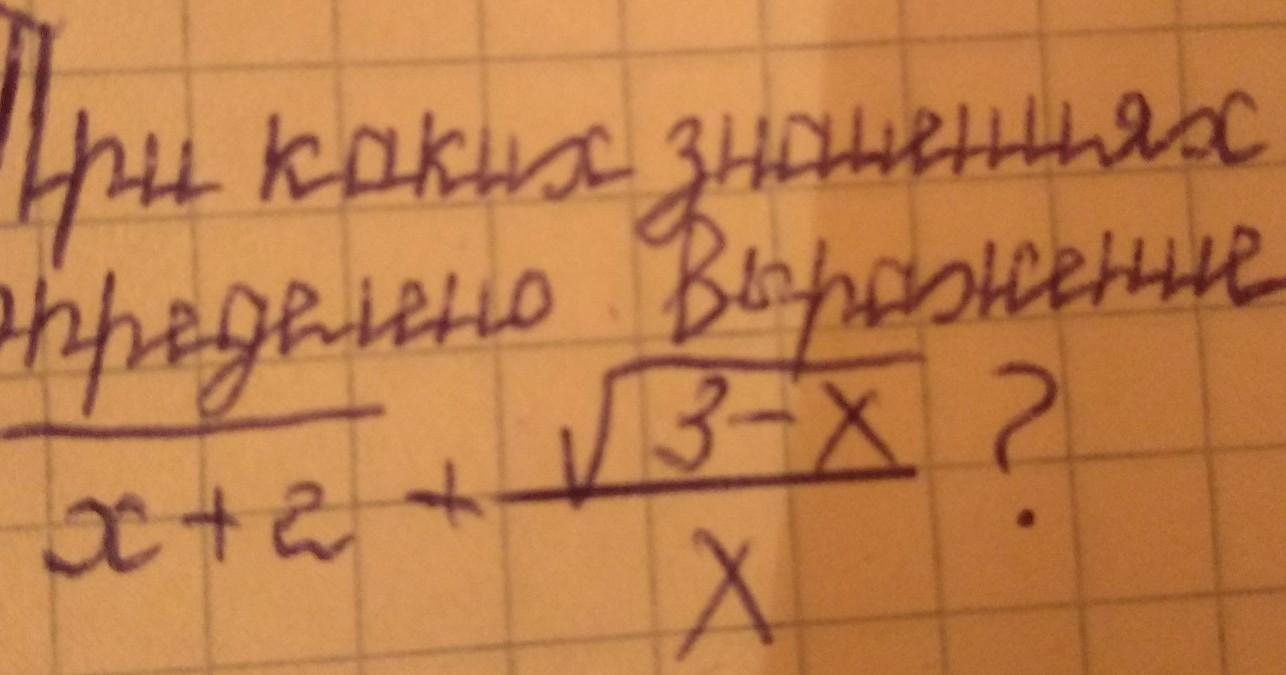 При каких значениях
определено выражение
x+2 + √(3-x)/x ?